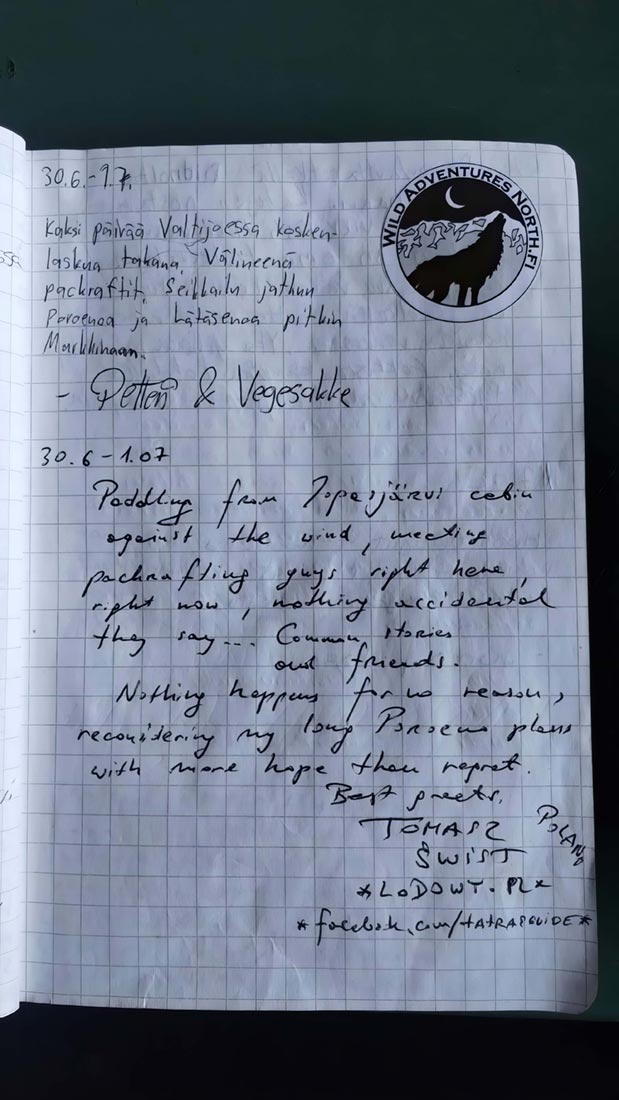 30.6.-9.7.
WILD ADVENTURES NORTH.FI
Kaksi päivää Valtijoessa kosken-
laskua takana. Välineenä
packraftit. Seikkailu jatkuu
Poroenoa ja Lätäsenoa pitkin
Markkinaan.
- Petteri & Vegesakke
30.6-1.07
Paddling from Zoposjärvi cabin
against the wind, meeting
packrafting guys right here,
right now, nothing accidental
they say... Common stories
and friends.
Nothing happens for no reason,
reconsidering my long Poroeno plans
with more hope than regret.
Best greets,
TOMASZ
POLAND
ŚWIST
*LODOWY.PL*
*facebook.com/TATRAGUIDE*